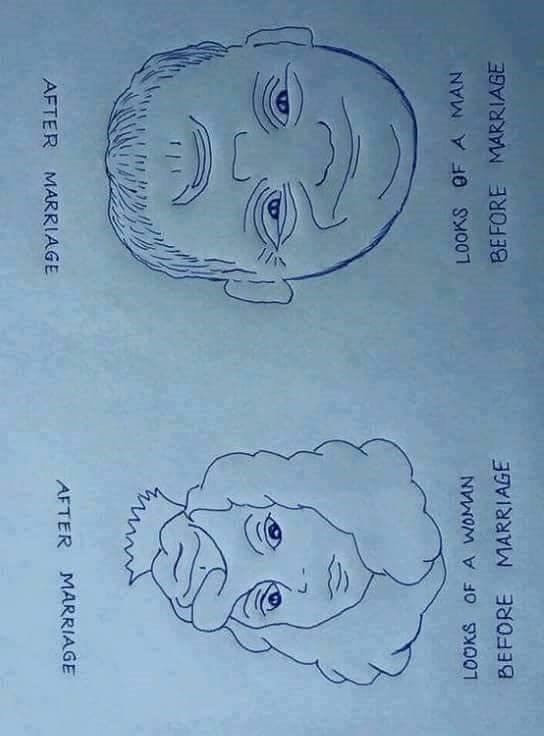 LOOKS OF A MAN
BEFORE MARRIAGE
AFTER MARRIAGE
LOOKS OF A WOMAN
BEFORE MARRIAGE
AFTER MARRIAGE